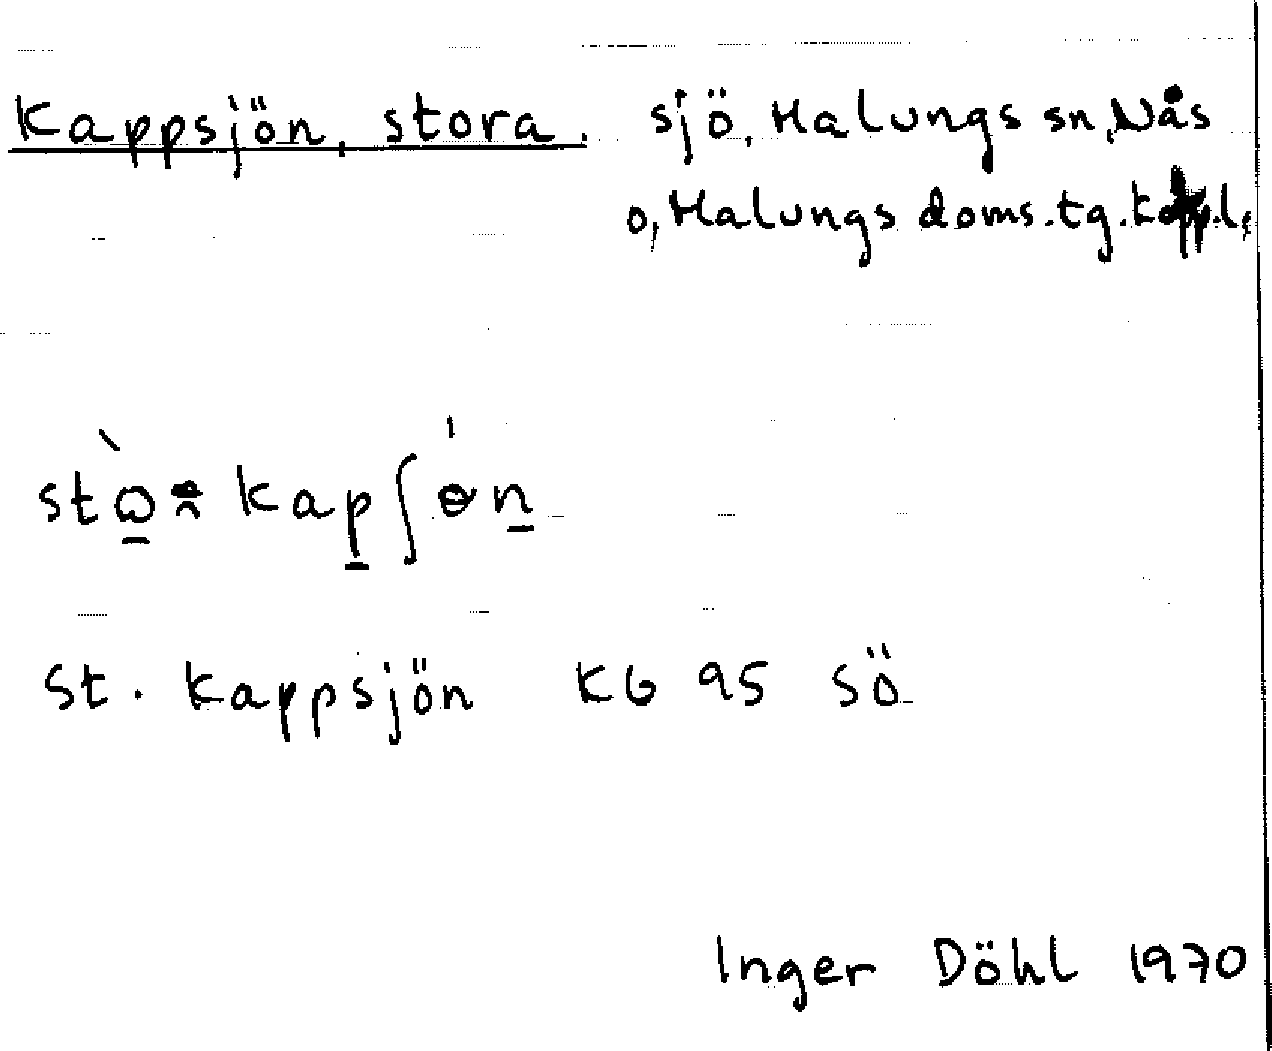 Kappsjön, stora. sjö, Malungs sn, Nås
o, Malungs doms.tg. Kopp.l.
kapʃɵn
St. Kappsjön KG 95 SÖ
Inger Döhl 1970